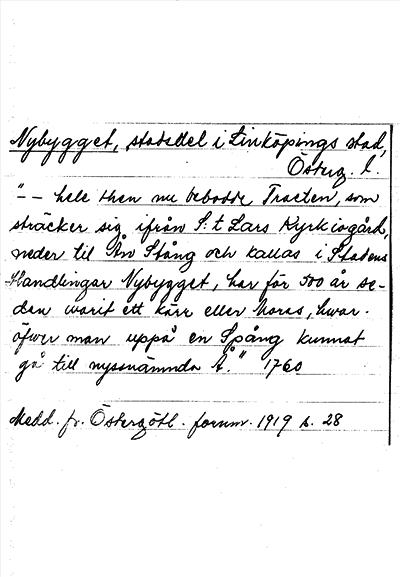 Nybygget, stadsdel i Linköpings stad,
Österg. l.
"-- hele then nu bebodde Tracten, som
sträcker sig ifrån S:t Lars Kyrkiogård,
neder til Ån Stång och kallas i Stadens
Handlingar Nybygget, har för 500 år se-
dan warit ett kärr eller Moras, hwar-
öfwer man uppå en Spång kunnat
gå till nyssnämnda Å." 1760
Medd. fr. Östergötl. fornm. 1919 s. 28